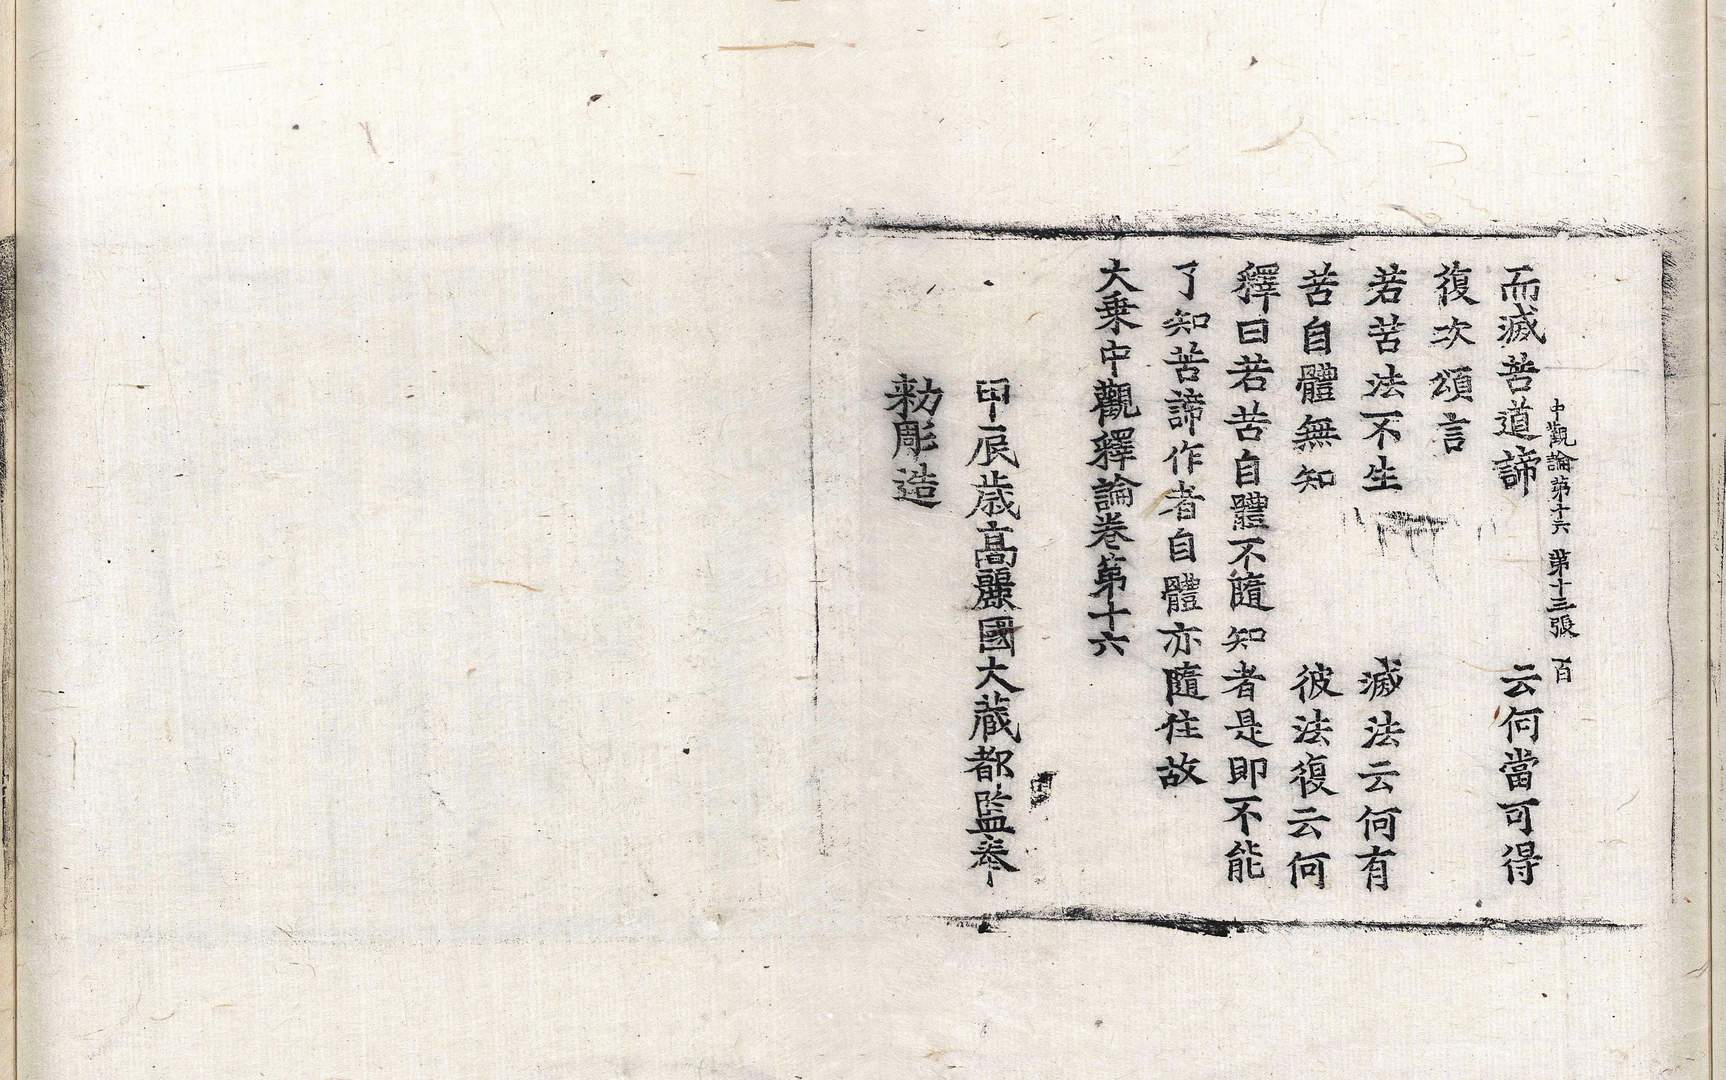 中觀論第十六　第十三張　百
而滅苦道諦　云何當可得
復次頌言
若苦法不生　滅法云何有
苦自體無知　彼法復云何
釋曰若苦自體不隨知者是即不能
了知苦諦作者自體亦隨住故
大乗中觀釋論卷第十六
甲辰歳髙麗國大藏都監奉
勑彫造